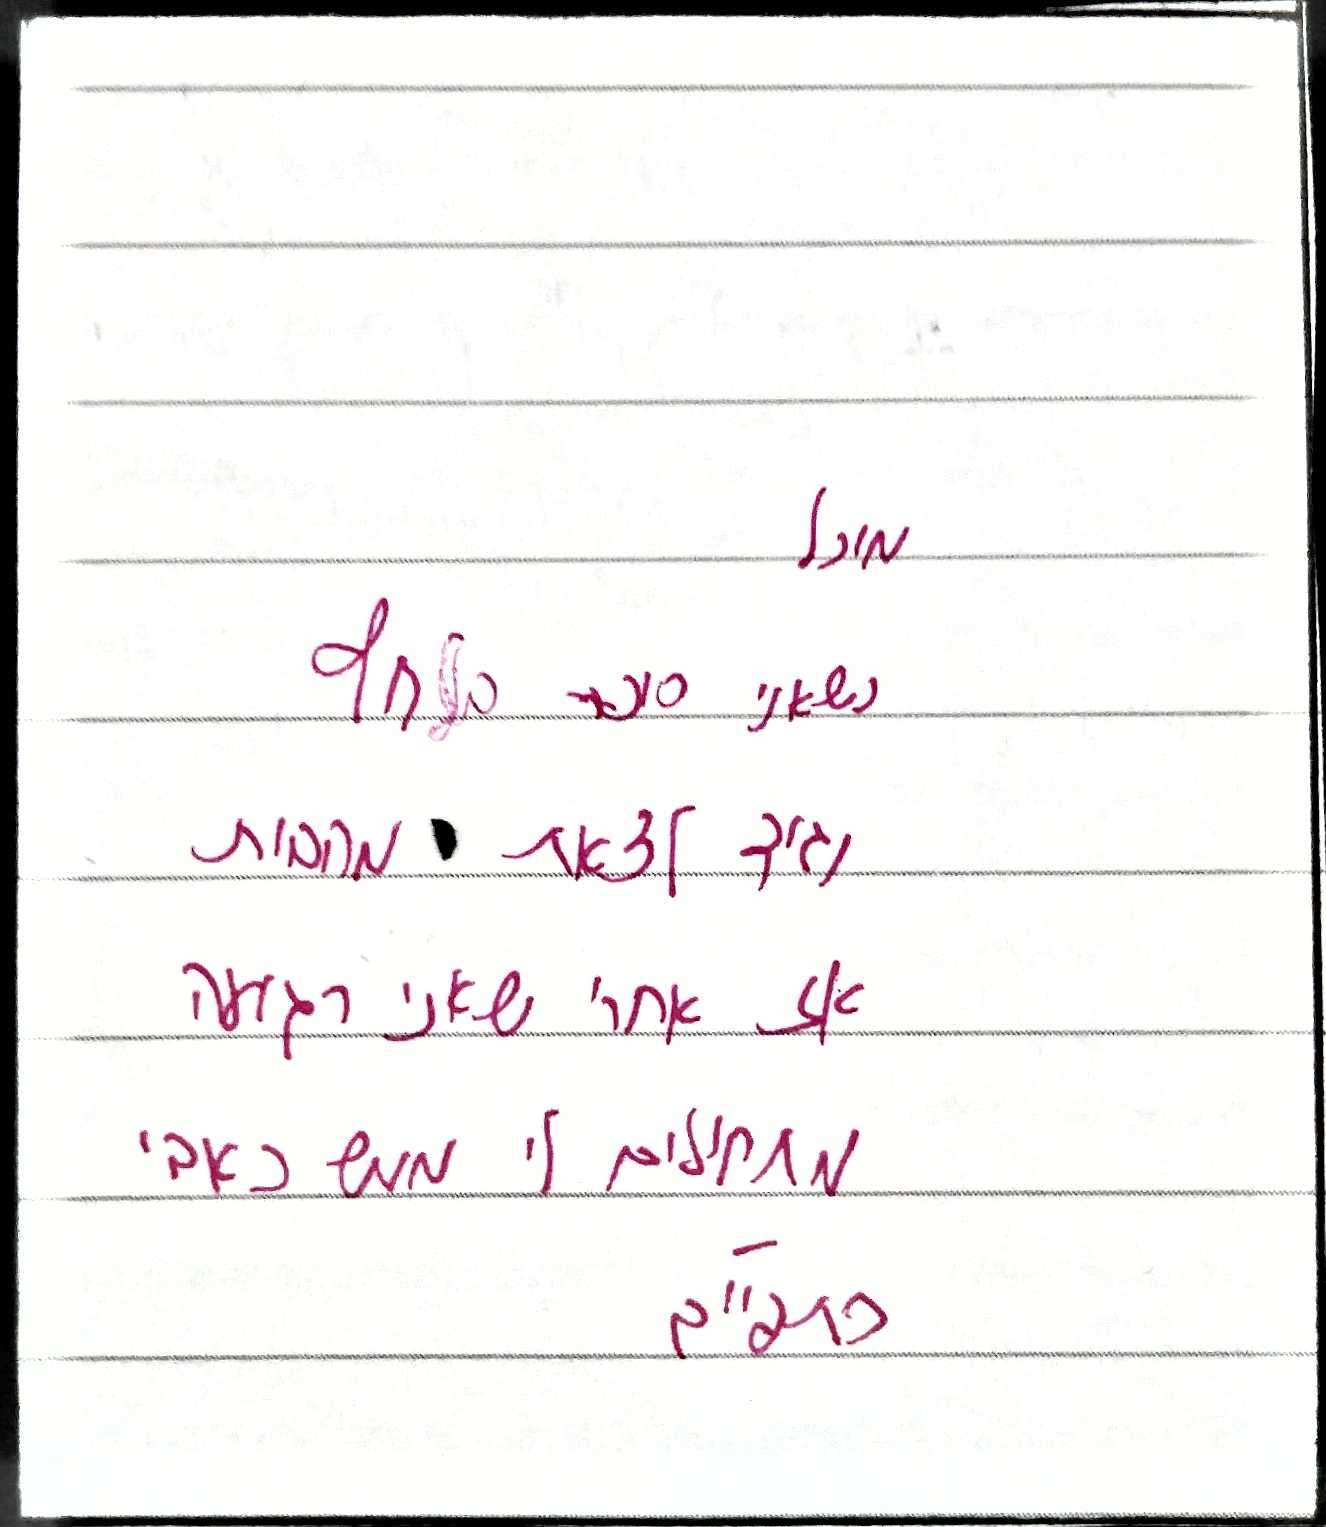 מיכל
כשאני
נגיד לצאת מהבית
אז אחרי שאני רגועה
מתחילים לי ממש כאבי
כתפיים